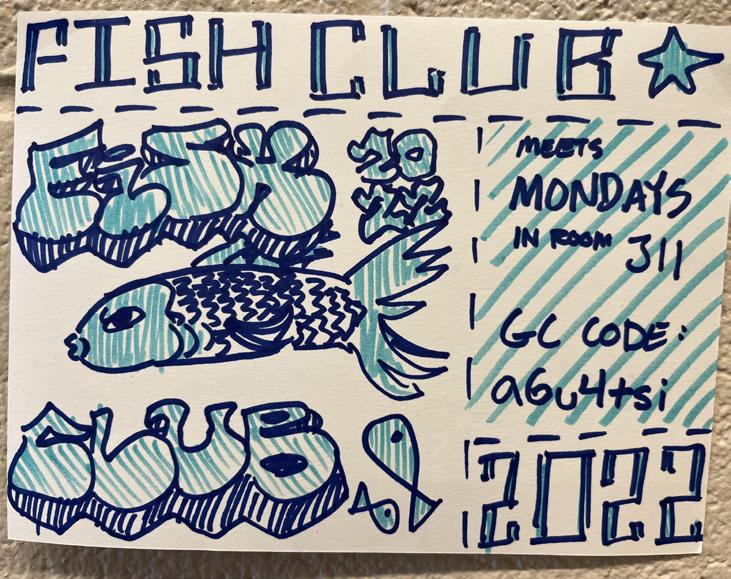 FISH CLUB
FISH
MEETS
MONDAYS
IN ROOM 311
GC CODE:
a6u4tsi
CLUB
2022